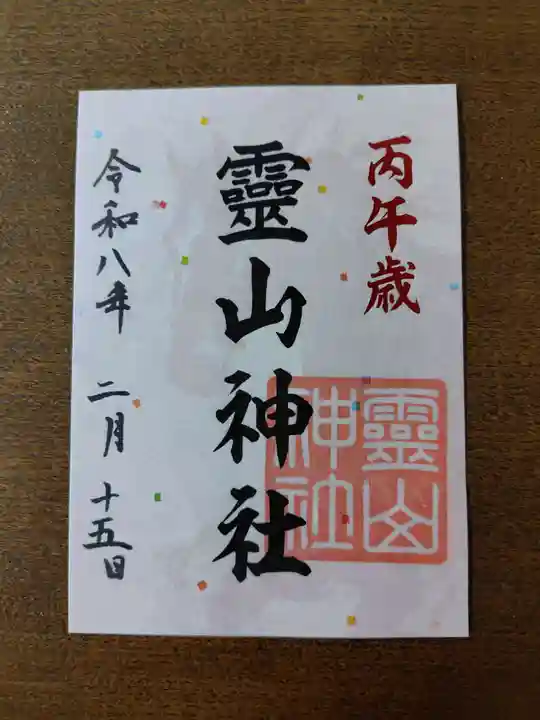 丙午歳
靈山神社
靈山
神社
令和八年 二月 十五日